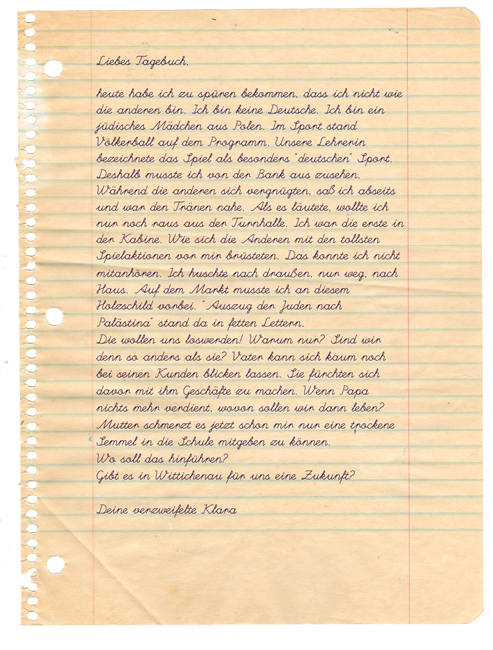 Liebes Tagebuch,
heute habe ich zu spüren bekommen, dass ich nicht wie
die anderen bin. Ich bin keine Deutsche. Ich bin ein
jüdisches Mädchen aus Polen. Im Sport stand
Völkerball auf dem Programm. Unsere Lehrerin
bezeichnete das Spiel als besonders "deutschen" Sport.
Deshalb musste ich von der Bank aus zusehen.
Während die anderen sich vergnügten, saß ich abseits
und war den Tränen nahe. Als es läutete, wollte ich
nur noch raus aus der Turnhalle. Ich war die erste in
der Kabine. Wie sich die Anderen mit den tollsten
Spielaktionen vor mir brüsteten. Das konnte ich nicht
mitanhören. Ich huschte nach draußen, nur weg, nach
Haus. Auf dem Markt musste ich an diesem
Holzschild vorbei. "Auszug der Juden nach
Palästina" stand da in fetten Lettern.
Die wollen uns loswerden! Warum nur? Sind wir
denn so anders als sie? Vater kann sich kaum noch
bei seinen Kunden blicken lassen. Sie fürchten sich
davor mit ihm Geschäfte zu machen. Wenn Papa
nichts mehr verdient, wovon sollen wir dann leben?
Mutter schmerzt es jetzt schon mir nur eine trockene
Semmel in die Schule mitgeben zu können.
Wo soll das hinführen?
Gibt es in Wittichenau für uns eine Zukunft?
Deine verzweifelte Klara